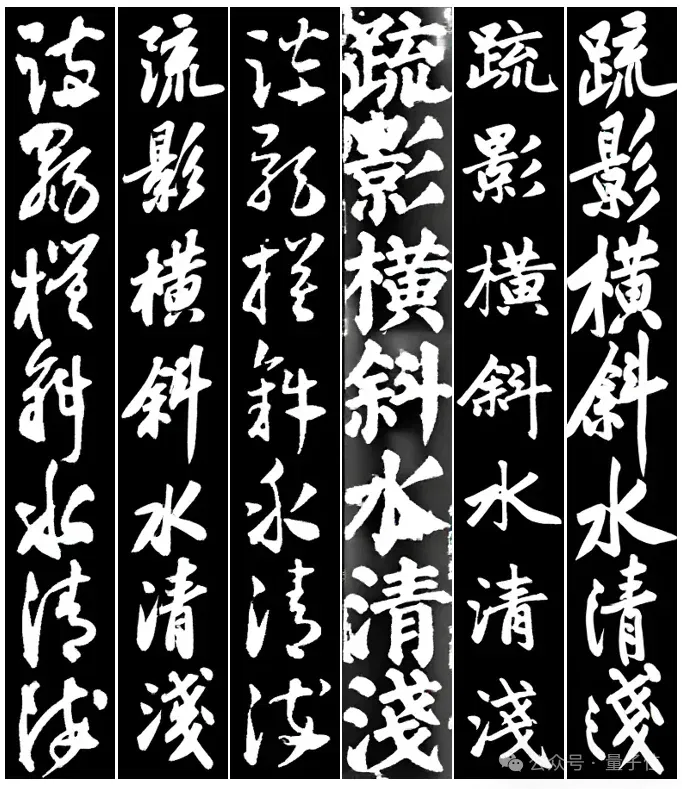 疏影横斜水清淺
疏影横斜水清淺
疏影横斜水清淺
横斜水清淺
疏影横斜水清淺
横斜水清淺
公众号 · 量子位